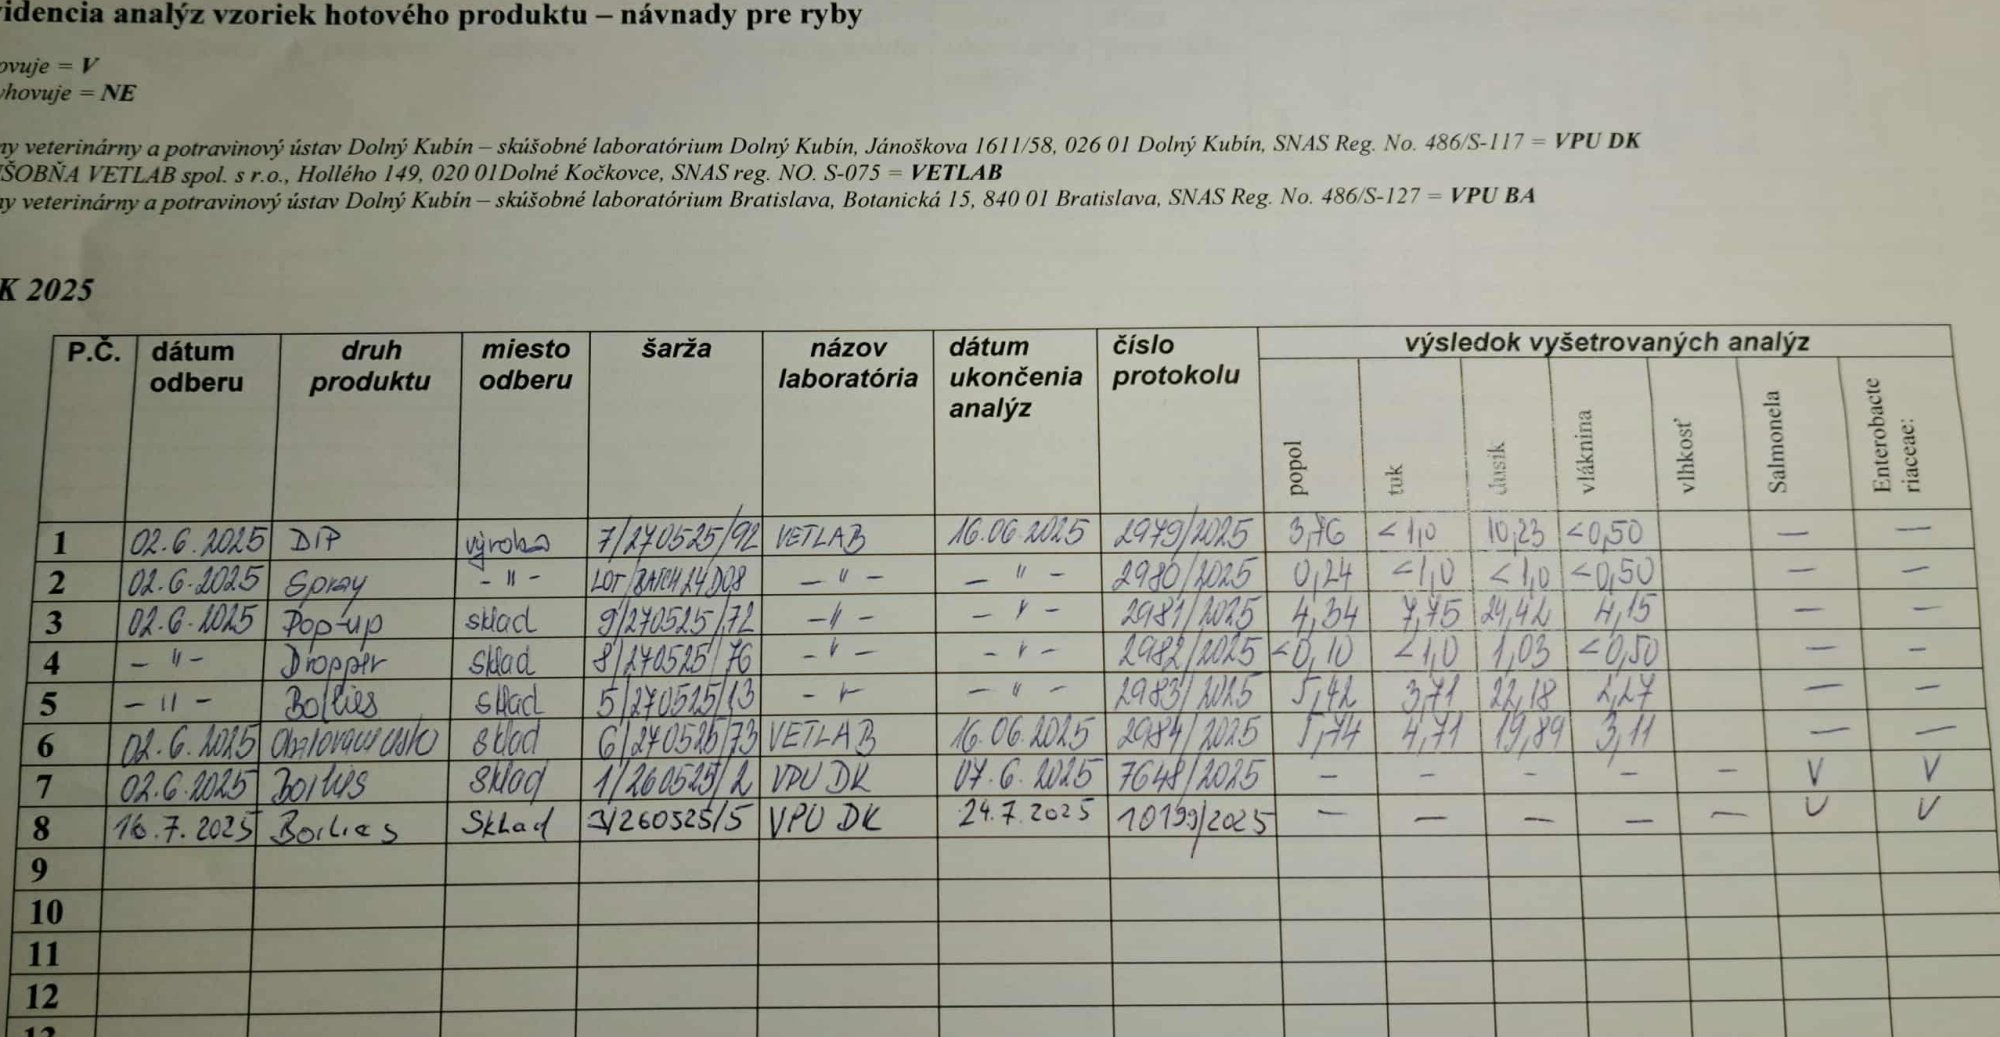 videncia analýz vzoriek hotového produktu – návnady pre ryby
ovuje = V
yhovuje = NE
ny veterinárny a potravinový ústav Dolný Kubín – skúšobné laboratórium Dolný Kubín, Jánoškova 1611/58, 026 01 Dolný Kubín, SNAS Reg. No. 486/S-117 = VPU DK
ŠOBŇA VETLAB spol. s r.o., Hollého 149, 020 01Dolné Kočkovce, SNAS reg. NO. S-075 = VETLAB
ny veterinárny a potravinový ústav Dolný Kubín – skúšobné laboratórium Bratislava, Botanická 15, 840 01 Bratislava, SNAS Reg. No. 486/S-127 = VPU BA
K 2025
P.Č. dátum odberu druh produktu miesto odberu šarža názov laboratória dátum ukončenia analýz číslo protokolu výsledok vyšetrovaných analýz
popol tuk dusík vláknina vlhkosť Salmonela Enterobacte riaceae:
1 02.6.2025 DIP výroba 7/270525/92 VETLAB 16.06.2025 2979/2025 3,76 <1,0 10,23 <0,50 — —
2 02.6.2025 Spray - " - LOT/BATCH 24D08 - " - - " - 2980/2025 0,24 <1,0 <1,0 <0,50 — —
3 02.6.2025 Pop-up sklad 9/270525/72 - " - - " - 2981/2025 4,34 7,75 24,42 4,15 — —
4 - " - Dropper sklad 8/270525/76 - " - - " - 2982/2025 <0,10 <1,0 1,03 <0,50 — —
5 - " - Boilies sklad 5/270525/13 - " - - " - 2983/2025 5,42 3,71 22,18 2,27 — —
6 02.6.2025 Obaľovacie cesto sklad 6/270525/73 VETLAB 16.06.2025 2984/2025 5,74 4,71 19,89 3,11 — —
7 02.6.2025 Boilies sklad 1/260525/2 VPU DK 07.6.2025 7648/2025 — — — — — V V
8 16.7.2025 Boilies Sklad 3/260525/5 VPU DK 24.7.2025 10199/2025 — — — — — V V
9
10
11
12
13